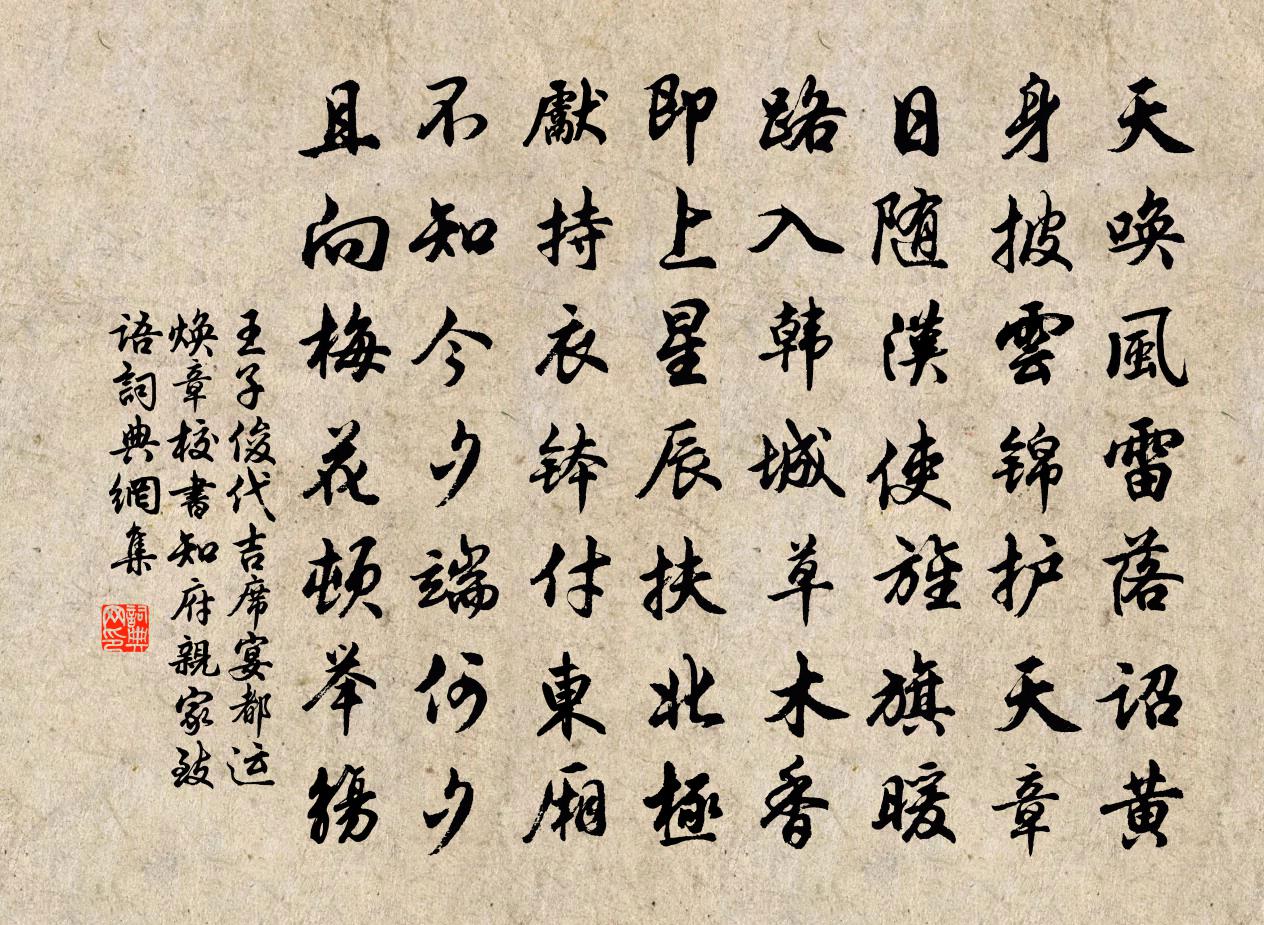 天唤風雷落诏黄
身披雲锦护天章
日随漢使旌旗暖
路入韩城草木香
即上星辰扶北極
獻持衣钵付東厢
不知今夕端何夕
且向梅花頓举觞
王子俊代吉席宴都运
焕章校書知府親家致
语詞典網集
詞典网印